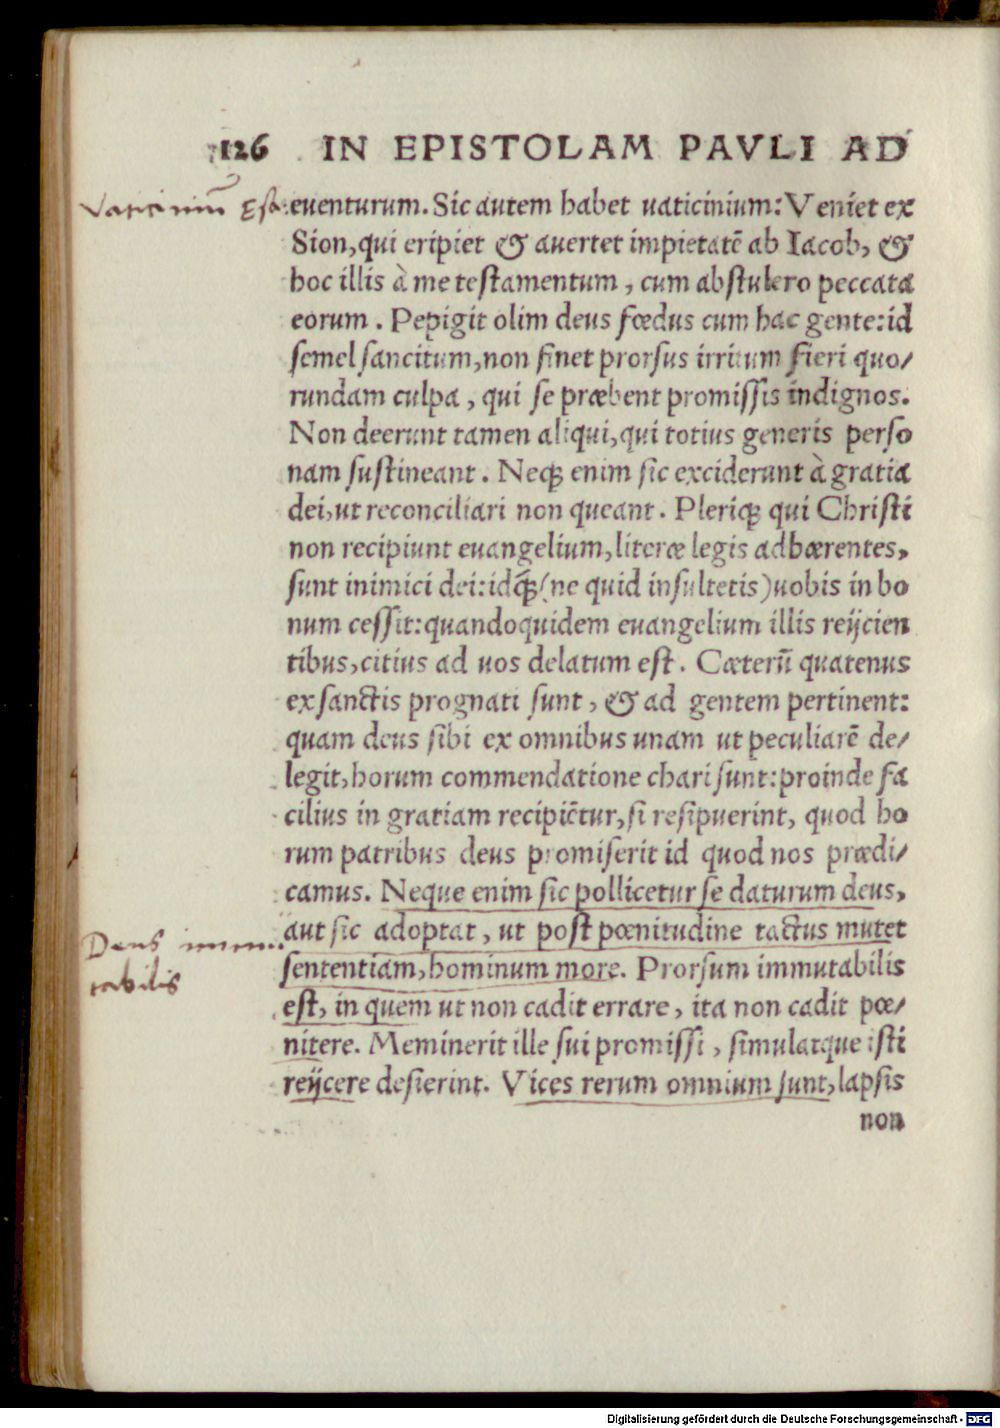 126 IN EPISTOLAM PAVLI AD
Vaticiniũ Esa.
euenturum. Sic autem habet uaticinium: Veniet ex
Sion, qui eripiet & auertet impietatẽ ab Iacob, &
hoc illis à me testamentum, cum abstulero peccata
eorum. Pepigit olim deus fœdus cum hac gente: id
semel sancitum, non sinet prorsus irritum fieri quo/
rundam culpa, qui se præbent promissis indignos.
Non deerunt tamen aliqui, qui totius generis perso
nam sustineant. Neqꝫ enim sic exciderunt à gratia
dei, ut reconciliari non queant. Pleriqꝫ qui Christi
non recipiunt euangelium, literæ legis adhærentes,
sunt inimici dei: idq̃ꝫ (ne quid insultetis) uobis in bo
num cessit: quandoquidem euangelium illis reijcien
tibus, citius ad uos delatum est. Cæterũ quatenus
ex sanctis prognati sunt, & ad gentem pertinent:
quam deus sibi ex omnibus unam ut peculiarẽ de/
legit, horum commendatione chari sunt: proinde fa
cilius in gratiam recipiẽtur, si resipuerint, quod ho
rum patribus deus promiserit id quod nos prædi/
camus. Neque enim sic pollicetur se daturum deus,
aut sic adoptat, ut post pœnitudine tactus mutet
Deus immu
tabilis
sententiam, hominum more. Prorsum immutabilis
est, in quem ut non cadit errare, ita non cadit pœ/
nitere. Meminerit ille sui promissi, simulatque isti
reijcere desierint. Vices rerum omnium sunt, lapsis
non
Digitalisierung gefördert durch die Deutsche Forschungsgemeinschaft - DFG